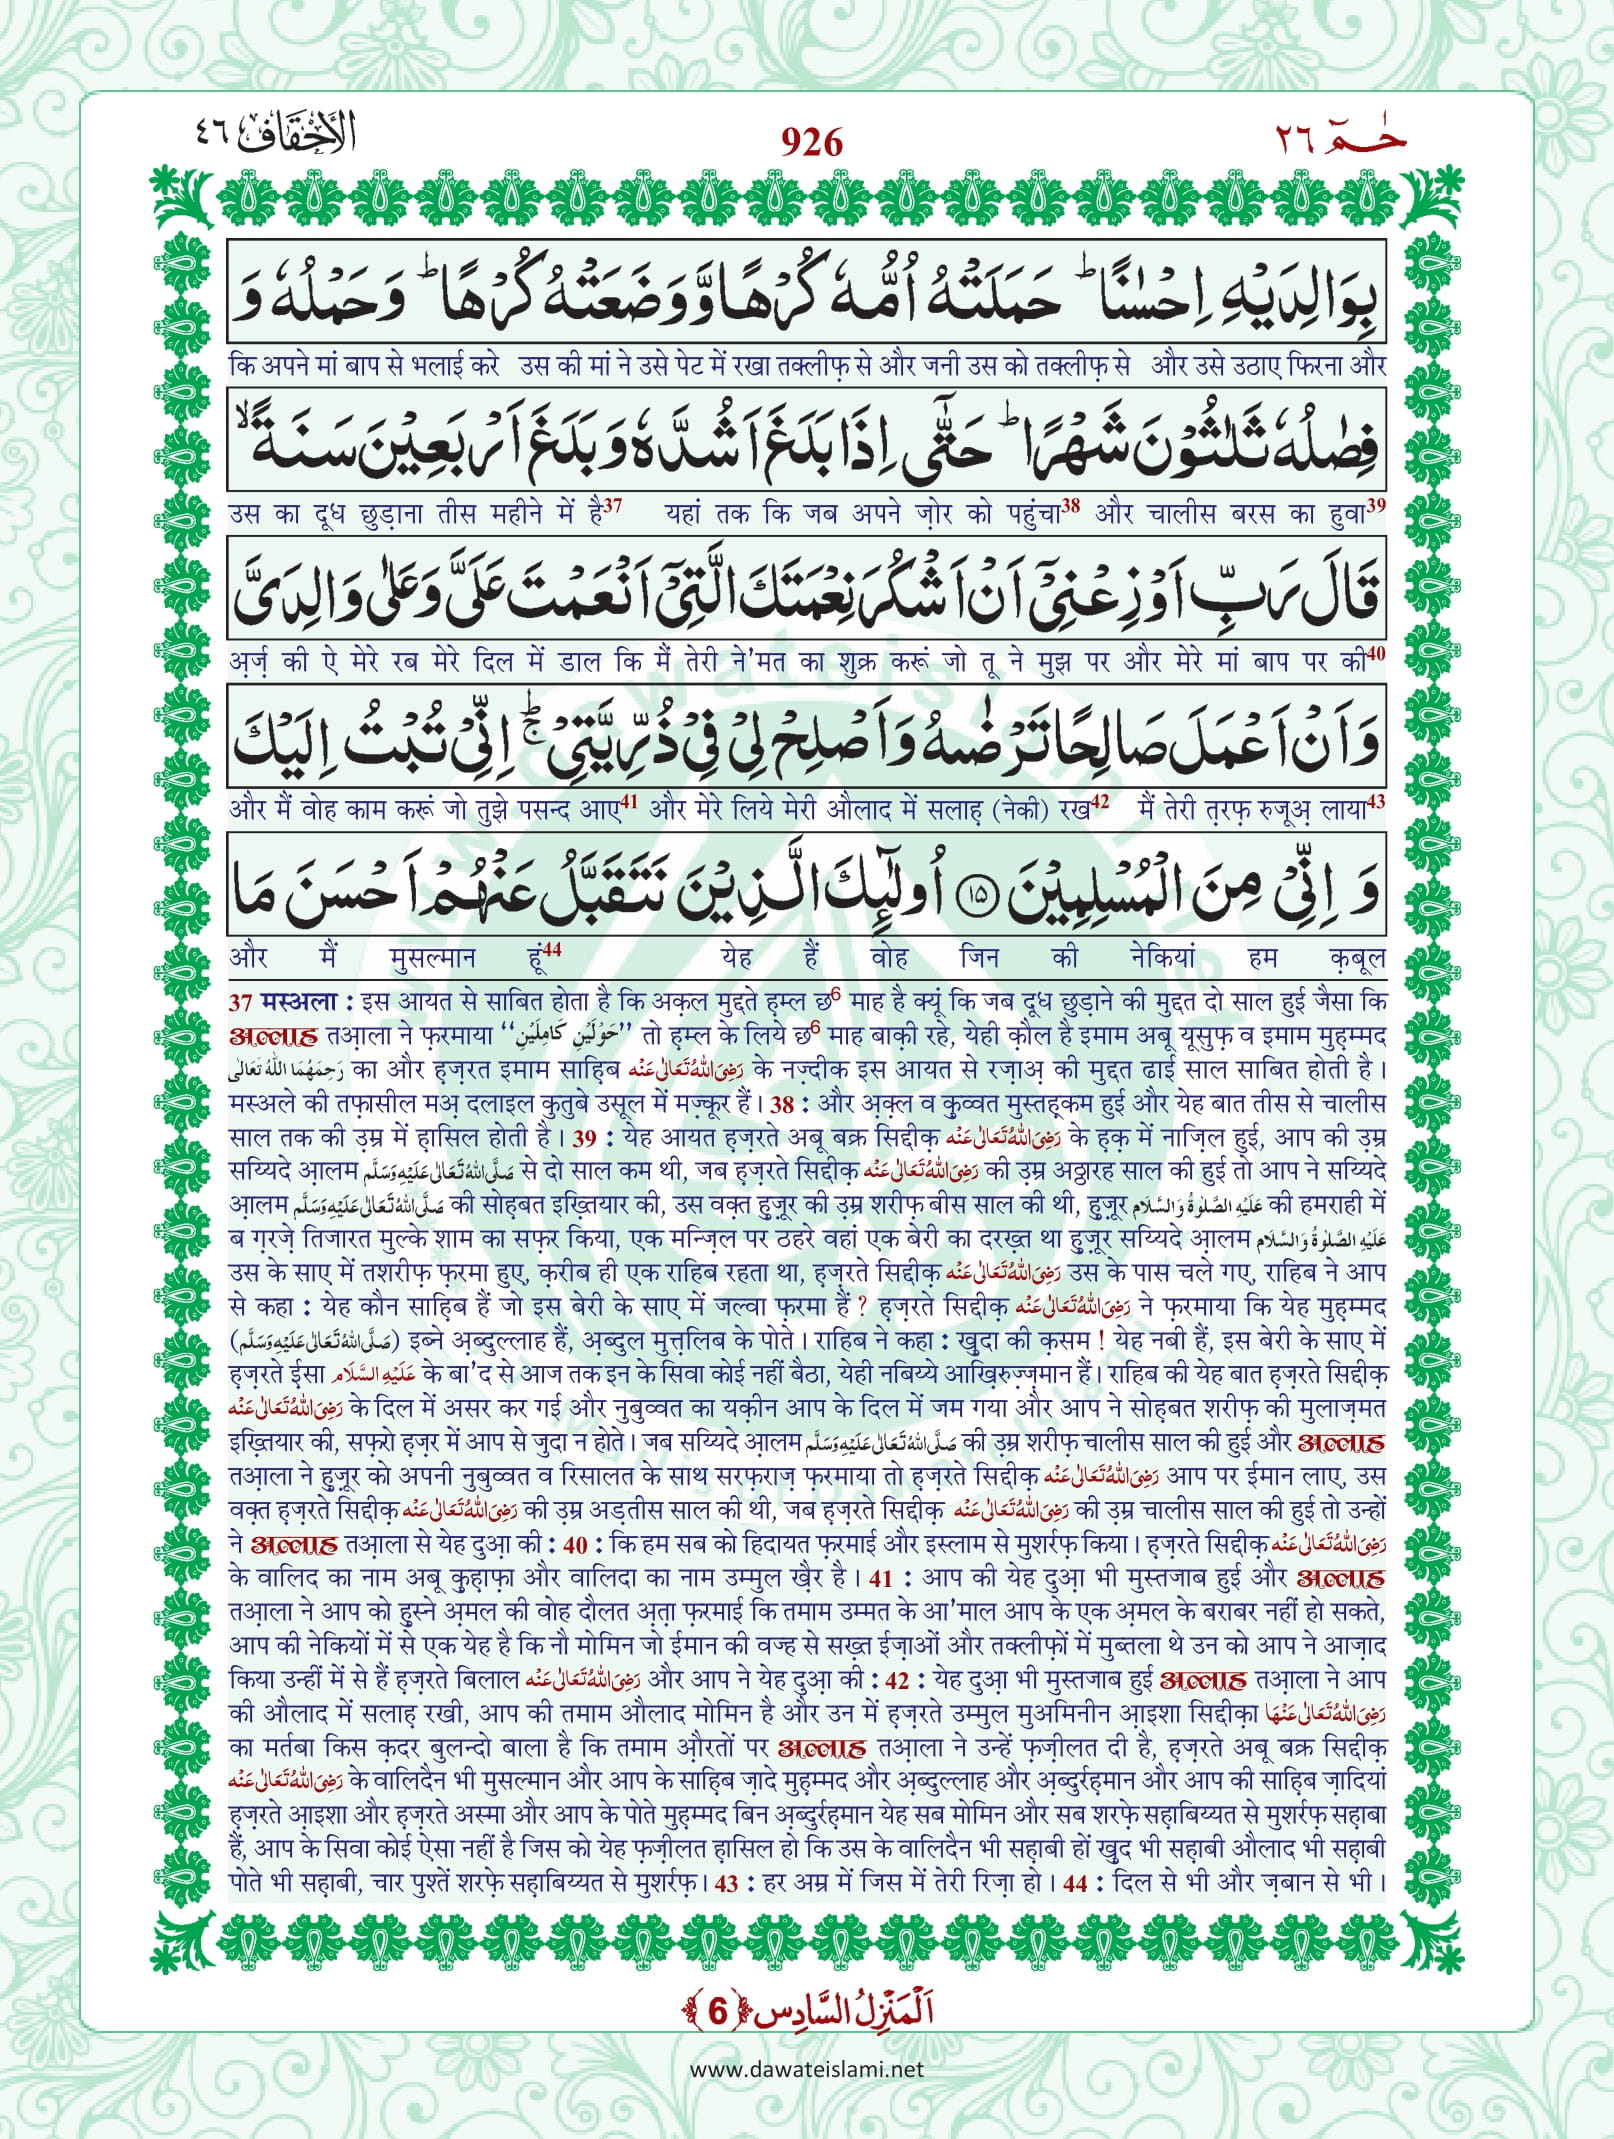 الأحقاف ٤٦
926
حٰمٓ ٢٦
بِوَالِدَيْهِ اِحْسٰنًا ؕ حَمَلَتْهُ اُمُّهٗ كُرْهًا وَّ وَضَعَتْهُ كُرْهًا ؕ وَ حَمْلُهٗ وَ
कि अपने मां बाप से भलाई करे उस की मां ने उसे पेट में रखा तक्लीफ़ से और जनी उस को तक्लीफ़ से और उसे उठाए फिरना और
فِصٰلُهٗ ثَلٰثُوْنَ شَهْرًا ؕ حَتّٰۤى اِذَا بَلَغَ اَشُدَّهٗ وَ بَلَغَ اَرْبَعِيْنَ سَنَةً ۙ
उस का दूध छुड़ाना तीस महीने में है37 यहां तक कि जब अपने ज़ोर को पहुंचा38 और चालीस बरस का हुवा39
قَالَ رَبِّ اَوْزِعْنِيْۤ اَنْ اَشْكُرَ نِعْمَتَكَ الَّتِيْۤ اَنْعَمْتَ عَلَيَّ وَ عَلٰى وَالِدَيَّ
अ़र्ज़ की ऐ मेरे रब मेरे दिल में डाल कि मैं तेरी ने'मत का शुक्र करूं जो तू ने मुझ पर और मेरे मां बाप पर की40
وَ اَنْ اَعْمَلَ صَالِحًا تَرْضٰىهُ وَ اَصْلِحْ لِيْ فِيْ ذُرِّيَّتِيْ ۚؕ اِنِّيْ تُبْتُ اِلَيْكَ
और मैं वोह काम करूं जो तुझे पसन्द आए41 और मेरे लिये मेरी औलाद में सलाह़ (नेकी) रख42 मैं तेरी त़रफ़ रुजूअ़ लाया43
وَ اِنِّيْ مِنَ الْمُسْلِمِيْنَ ۝۱۵ اُولٰٓىِٕكَ الَّذِيْنَ نَتَقَبَّلُ عَنْهُمْ اَحْسَنَ مَا
और मैं मुसल्मान हूं44 येह हैं वोह जिन की नेकियां हम क़बूल
37 मस्अला : इस आयत से साबित होता है कि अक़ल मुद्दते ह़म्ल छ6 माह है क्यूं कि जब दूध छुड़ाने की मुद्दत दो साल हुई जैसा कि
अल्लाह तआ़ला ने फ़रमाया ‘‘حَوْلَيْنِ كَامِلَيْنِ’’ तो ह़म्ल के लिये छ6 माह बाक़ी रहे, येही क़ौल है इमाम अबू यूसुफ़ व इमाम मुह़म्मद
رَحِمَهُمَا اللهُ تَعَالٰى का और ह़ज़रत इमाम साह़िब رَضِىَ اللهُ تَعَالٰى عَنْه के नज़्दीक इस आयत से रज़ाअ़ की मुद्दत ढाई साल साबित होती है।
मस्अले की तफ़ासील मअ़ दलाइल कुतुबे उसूल में मज़्कूर हैं। 38 : और अ़क़्ल व कुव्वत मुस्तह़कम हुई और येह बात तीस से चालीस
साल तक की उ़म्र में ह़ासिल होती है। 39 : येह आयत ह़ज़रते अबू बक्र सिद्दीक़ رَضِىَ اللهُ تَعَالٰى عَنْه के ह़क़ में नाज़िल हुई, आप की उ़म्र
सय्यिदे आ़लम صَلَّى اللهُ تَعَالٰى عَلَيْهِ وَسَلَّم से दो साल कम थी, जब ह़ज़रते सिद्दीक़ رَضِىَ اللهُ تَعَالٰى عَنْه की उ़म्र अठ्ठारह साल की हुई तो आप ने सय्यिदे
आ़लम صَلَّى اللهُ تَعَالٰى عَلَيْهِ وَسَلَّم की सोह़बत इख़्तियार की, उस वक़्त हु़ज़ूर की उ़म्र शरीफ़ बीस साल की थी, हु़ज़ूर عَلَيْهِ الصَّلٰوةُ وَالسَّلَام की हमराही में
ब ग़रज़े तिजारत मुल्के शाम का सफ़र किया, एक मन्ज़िल पर ठहरे वहां एक बेरी का दरख़्त था हु़ज़ूर सय्यिदे आ़लम عَلَيْهِ الصَّلٰوةُ وَالسَّلَام
उस के साए में तशरीफ़ फ़रमा हुए, क़रीब ही एक राहिब रहता था, ह़ज़रते सिद्दीक़ رَضِىَ اللهُ تَعَالٰى عَنْه उस के पास चले गए, राहिब ने आप
से कहा : येह कौन साह़िब हैं जो इस बेरी के साए में जल्वा फ़रमा हैं ? ह़ज़रते सिद्दीक़ رَضِىَ اللهُ تَعَالٰى عَنْه ने फ़रमाया कि येह मुह़म्मद
(صَلَّى اللهُ تَعَالٰى عَلَيْهِ وَسَلَّم) इब्ने अ़ब्दुल्लाह हैं, अ़ब्दुल मुत्तलिब के पोते। राहिब ने कहा : खुदा की क़सम ! येह नबी हैं, इस बेरी के साए में
ह़ज़रते ईसा عَلَيْهِ السَّلَام के बा'द से आज तक इन के सिवा कोई नहीं बैठा, येही नबिय्ये आख़िरुज़्ज़मान हैं। राहिब की येह बात ह़ज़रते सिद्दीक़
رَضِىَ اللهُ تَعَالٰى عَنْه के दिल में असर कर गई और नुबुव्वत का यक़ीन आप के दिल में जम गया और आप ने सोह़बत शरीफ़ की मुलाज़मत
इख़्तियार की, सफ़रो ह़ज़र में आप से जुदा न होते। जब सय्यिदे आ़लम صَلَّى اللهُ تَعَالٰى عَلَيْهِ وَسَلَّم की उ़म्र शरीफ़ चालीस साल की हुई और अल्लाह
तआ़ला ने हु़ज़ूर को अपनी नुबुव्वत व रिसालत के साथ सरफ़राज़ फ़रमाया तो ह़ज़रते सिद्दीक़ رَضِىَ اللهُ تَعَالٰى عَنْه आप पर ईमान लाए, उस
वक़्त ह़ज़रते सिद्दीक़ رَضِىَ اللهُ تَعَالٰى عَنْه की उ़म्र अड़तीस साल की थी, जब ह़ज़रते सिद्दीक़ رَضِىَ اللهُ تَعَالٰى عَنْه की उ़म्र चालीस साल की हुई तो उन्हों
ने अल्लाह तआ़ला से येह दुआ़ की : 40 : कि हम सब को हिदायत फ़रमाई और इस्लाम से मुशर्रफ़ किया। ह़ज़रते सिद्दीक़ رَضِىَ اللهُ تَعَالٰى عَنْه
के वालिद का नाम अबू क़ुह़ाफ़ा और वालिदा का नाम उम्मुल ख़ैर है। 41 : आप की येह दुआ़ भी मुस्तजाब हुई और अल्लाह
तआ़ला ने आप को हु़स्ने अ़मल की वोह दौलत अ़त़ा फ़रमाई कि तमाम उम्मत के आ'माल आप के एक अ़मल के बराबर नहीं हो सकते,
आप की नेकियों में से एक येह है कि नौ मोमिन जो ईमान की वज्ह से सख़्त ईज़ाओं और तक्लीफ़ों में मुब्तला थे उन को आप ने आज़ाद
किया उन्हीं में से हैं ह़ज़रते बिलाल رَضِىَ اللهُ تَعَالٰى عَنْه और आप ने येह दुआ़ की : 42 : येह दुआ़ भी मुस्तजाब हुई अल्लाह तआ़ला ने आप
की औलाद में सलाह़ रखी, आप की तमाम औलाद मोमिन है और उन में ह़ज़रते उम्मुल मुअमिनीन आ़इशा सिद्दीक़ा رَضِىَ اللهُ تَعَالٰى عَنْهَا
का मर्तबा किस क़दर बुलन्दो बाला है कि तमाम औ़रतों पर अल्लाह तआ़ला ने उन्हें फ़ज़ीलत दी है, ह़ज़रते अबू बक्र सिद्दीक़
رَضِىَ اللهُ تَعَالٰى عَنْه के वालिदैन भी मुसल्मान और आप के साह़िब ज़ादे मुह़म्मद और अ़ब्दुल्लाह और अ़ब्दुर्रह़मान और आप की साह़िब ज़ादियां
ह़ज़रते आ़इशा और ह़ज़रते अस्मा और आप के पोते मुह़म्मद बिन अ़ब्दुर्रह़मान येह सब मोमिन और सब शरफ़े सह़ाबिय्यत से मुशर्रफ़ सह़ाबा
हैं, आप के सिवा कोई ऐसा नहीं है जिस को येह फ़ज़ीलत ह़ासिल हो कि उस के वालिदैन भी सह़ाबी हों खुद भी सह़ाबी औलाद भी सह़ाबी
पोते भी सह़ाबी, चार पुश्तें शरफ़े सह़ाबिय्यत से मुशर्रफ़। 43 : हर अम्र में जिस में तेरी रिज़ा हो। 44 : दिल से भी और ज़बान से भी।
اَلْمَنْزِلُ السَّادِس ﴿6﴾
www.dawateislami.net